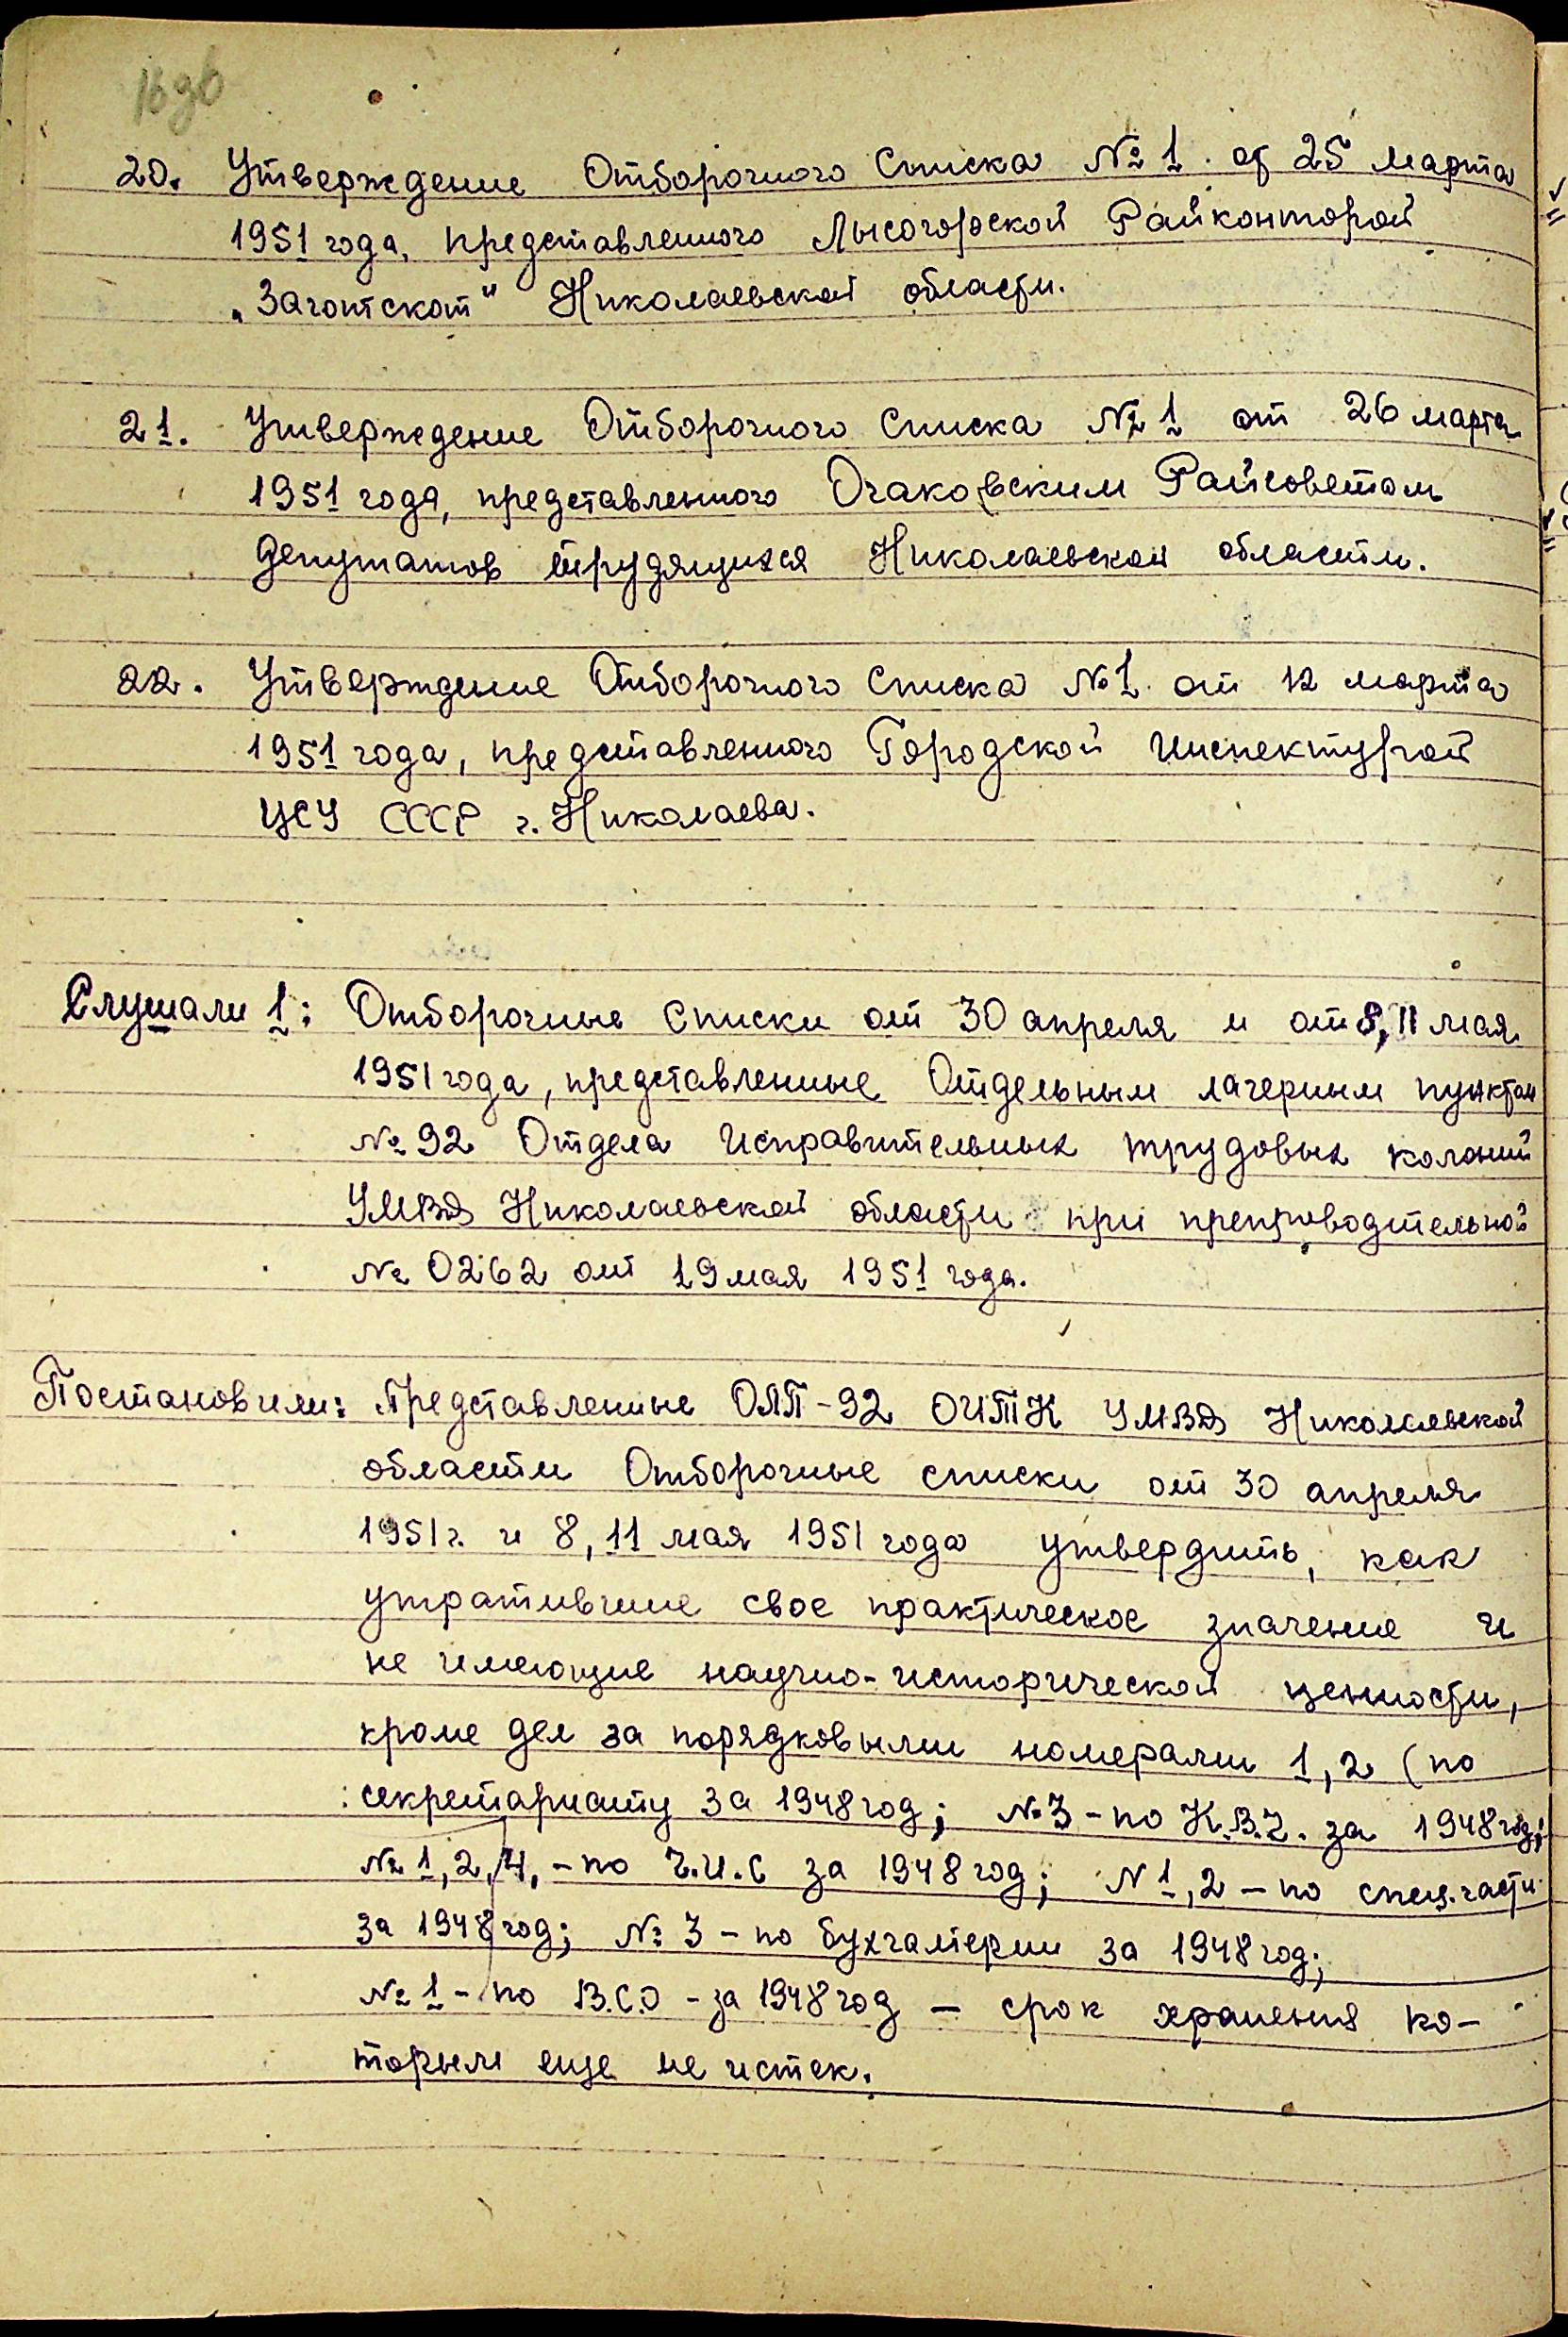 16 об
20. Утверждение Отборочного Списка № 1 от 25 марта
1951 года, представленного Лысогорской Райконторой
„Заготскот" Николаевской области.
21. Утверждение Отборочного Списка № 1 от 26 марта
1951 года, представленного Очаковским Райсоветом
депутатов трудящихся Николаевской области.
22. Утверждение Отборочного Списка № 1 от 12 марта
1951 года, представленного Городской Инспектурой
ЦСУ СССР г. Николаева.
Слушали 1: Отборочные Списки от 30 апреля и от 8, 11 мая
1951 года, представленные Отдельным лагерным пунктом
№ 92 Отдела Исправительных трудовых колоний
УМВД Николаевской области при препроводительной
№ 0262 от 19 мая 1951 года.
Постановили: Представленные ОЛП-92 ОИТК УМВД Николаевской
области Отборочные списки от 30 апреля
1951 г. и 8, 11 мая 1951 года утвердить, как
утратившие свое практическое значение и
не имеющие научно-исторической ценности,
кроме дел за порядковыми номерами 1, 2 (по
секретариату за 1948 год; № 3 - по К.В.Ч. за 1948 год;
№ 1, 2, 4, - по Ч.И.С за 1948 год; № 1, 2 - по спец.части
за 1948 год; № 3 - по бухгалтерии за 1948 год;
№ 1 - по В.С.О - за 1948 год - срок хранения ко-
торым еще не истек.